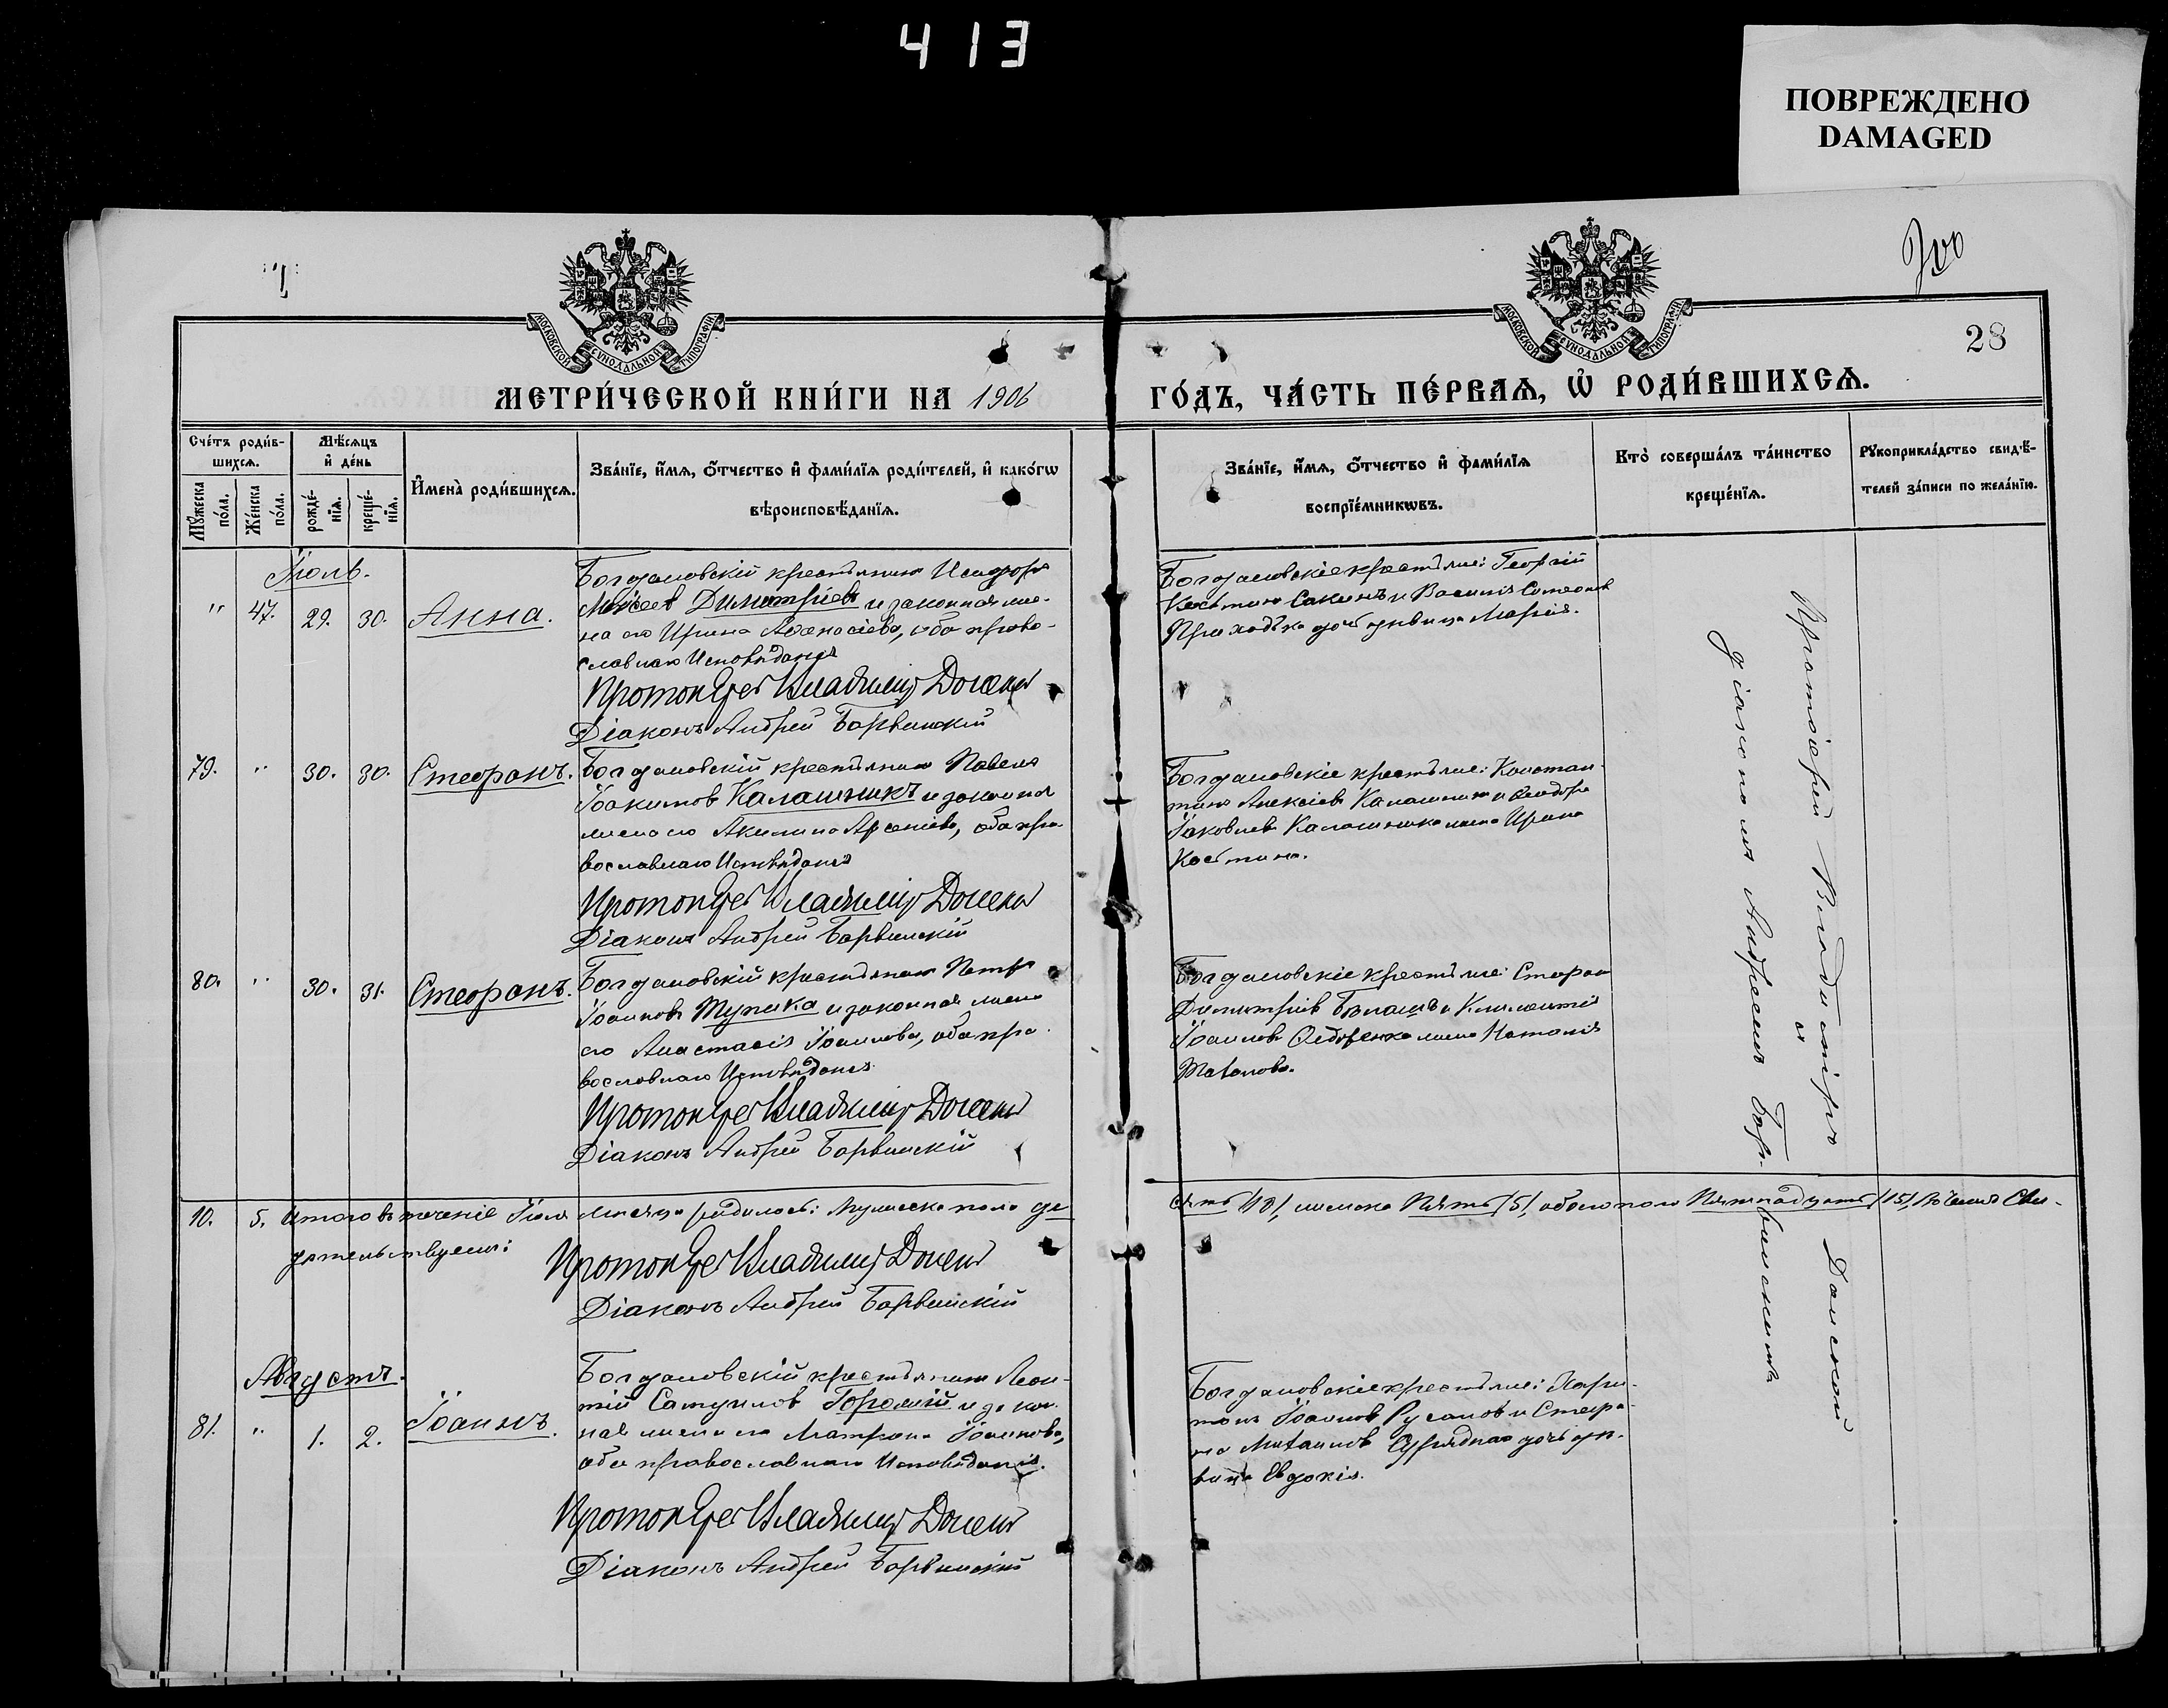 413
ПОВРЕЖДЕНО
DAMAGED
28
МОСКОВСКОЙ СѴНОДАЛЬНОЙ ТИПОГРАФІИ
МОСКОВСКОЙ СѴНОДАЛЬНОЙ ТИПОГРАФІИ
МЕТРИ́ЧЕСКОЙ КНИ́ГИ НА 1906
ГО́ДЪ, ЧА́СТЬ ПЕ́РВАѦ, Ѡ҆ РОДИ́ВШИХСѦ.
Сче́тъ роди́в-
шихсѧ.
Мꙋ́жеска по́ла.
Же́нска по́ла.
Мѣ́сѧцъ
и҆ де́нь
рожде́-
нїѧ.
креще́-
нїѧ.
И҆мена̀ роди́вшихсѧ.
Зва́нїе, и҆́мѧ, ѻ҆́тчество и҆ фами́лїѧ роди́телей, и҆ како́гѡ
вѣроисповѣ́данїѧ.
Зва́нїе, и҆́мѧ, ѻ҆́тчество и҆ фами́лїѧ
воспрїе́мникѡвъ.
Кто̀ соверша́лъ та́инство
креще́нїѧ.
Рꙋкоприкла́дство свидѣ́-
телей за́писи по жела́нїю.
Іюль.
" 47. 29. 30. Анна.
Богдановскій крестьянинъ Исидоръ
Моисеев Димитріевъ и законная же-
на его Ирина Афанасіева, оба право-
славнаго Исповѣданія
Протоіерей Владимиръ Донской
Діаконъ Андрей Барвинскій
Богдановскіе крестьяне: Георгій
и Василія Симеонов
Приходька дочь дѣвица Марія.
79. " 30. 30. Стефанъ.
Богдановскій крестьянинъ Павелъ
Іоакимов Калашникъ и законная
жена его Акилина Арсеніева, оба пра-
вославнаго Исповѣданія
Протоіерей Владимиръ Донской
Діаконъ Андрей Барвинскій
Богдановскіе крестьяне: Констан-
тинъ Алексіевъ Калашник и Ѳеодора
Іаковлева Калашника жена Ирина
Костина.
80. " 30. 31. Стефанъ.
Богдановскій крестьянинъ Петръ
Іоаннов Тупика и законная жена
его Анастасія Іоаннова, оба пра-
вославнаго Исповѣданія
Протоіерей Владимиръ Донской
Діаконъ Андрей Барвинскій
Богдановскіе крестьяне: Стефан
Димитріев и Климентія
Іоаннова жена Наталія
Протоіерей Владиміръ Донской
съ
діакономъ Андреемъ Барвинскимъ
10. 5. Итого въ теченіе Іюля мѣсяца родилось: Мужеска пола де
сять /10/, женска Пять /5/, обоего пола Пятнадцать /15/, въ чемъ Сви-
дѣтельствуемъ:
Протоіерей Владимиръ Донской
Діаконъ Андрей Барвинскій
Августъ.
81. " 1. 2. Іоаннъ.
Богдановскій крестьянинъ Леон-
тій и закон-
ная жена его Матрона Іоаннова,
оба православнаго Исповѣданія.
Протоіерей Владимиръ Донской
Діаконъ Андрей Барвинскій
Богдановскіе крестьяне: Хари-
тонъ Іоаннов Русанов и Стефа-
на дочь дѣ-
вица Евдокія.